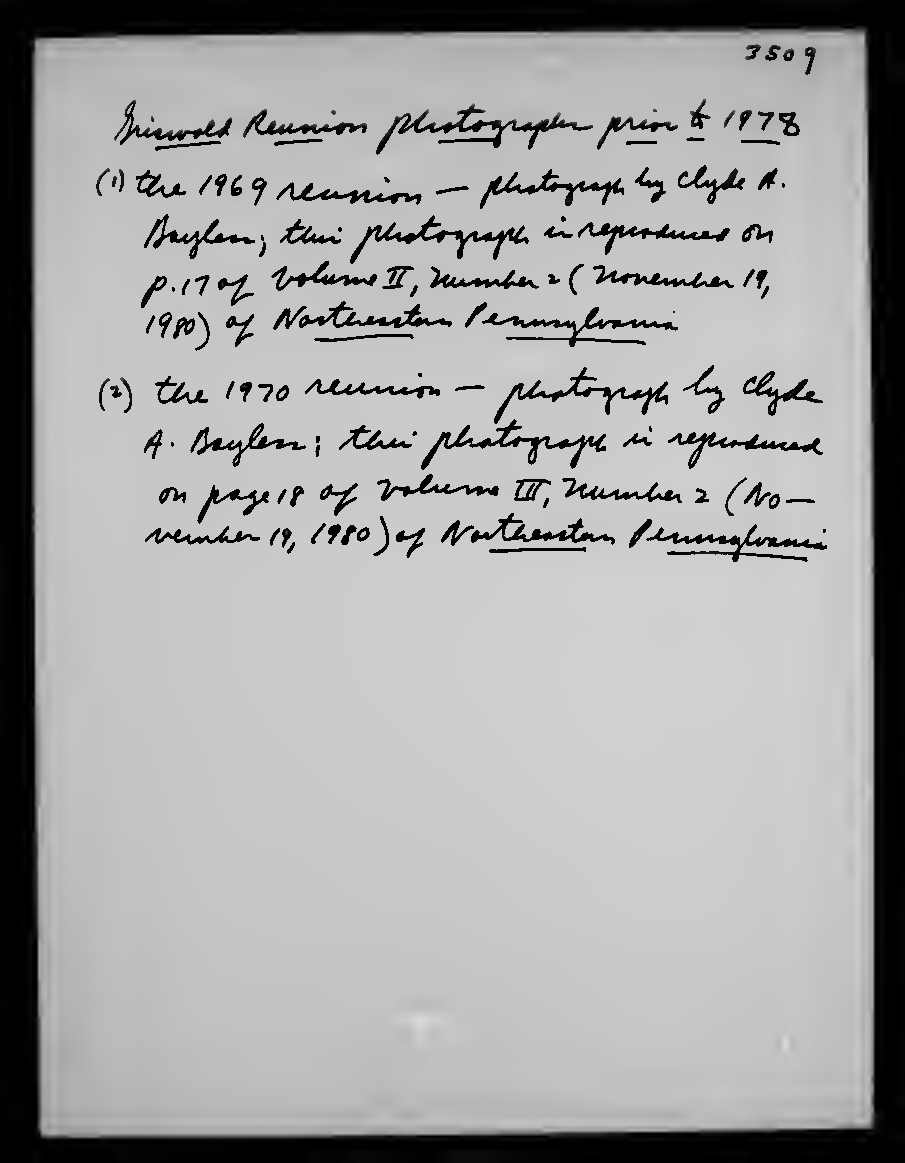 3509
Griswold Reunion photographs prior to 1978
(1) the 1969 reunion — photograph by Clyde A.
Bayless; this photograph is reproduced on
p.17 of Volume II, Number 2 (November 19,
1980) of Northeastern Pennsylvania
(2) the 1970 reunion — photograph by Clyde
A. Bayless; this photograph is reproduced
on page 18 of Volume III, Number 2 (No—
vember 19, 1980) of Northeastern Pennsylvania